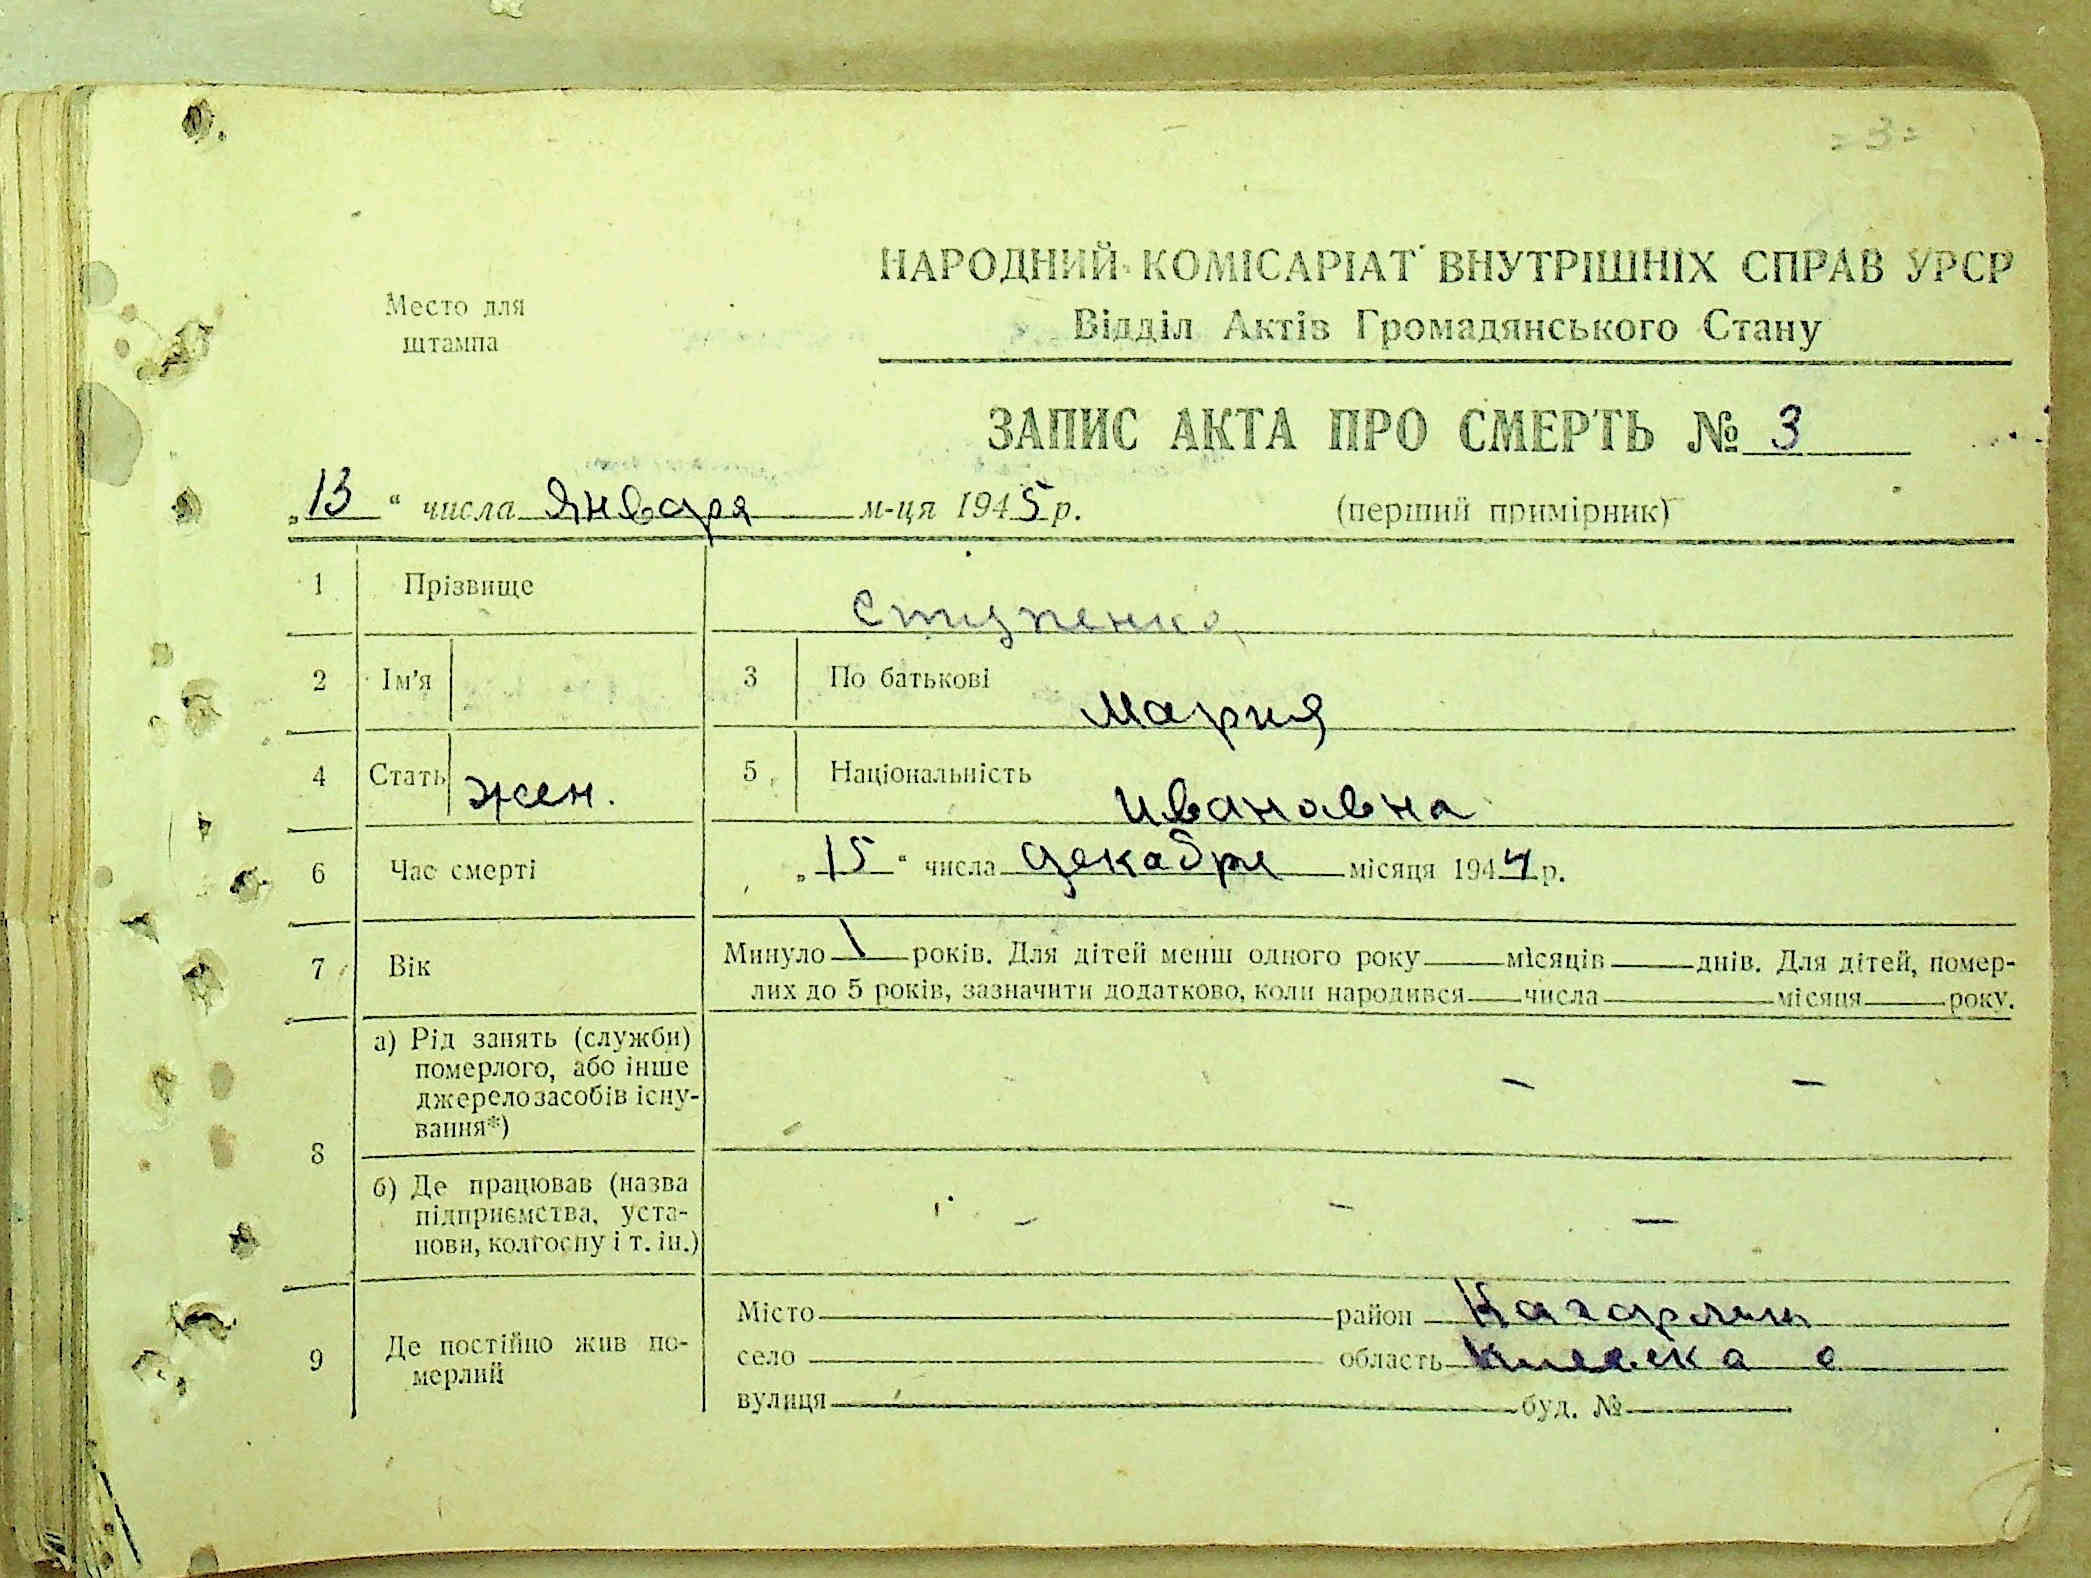 = 3 =
НАРОДНИЙ КОМІСАРІАТ ВНУТРІШНІХ СПРАВ УРСР
Відділ Актів Громадянського Стану
Место для
штампа
ЗАПИС АКТА ПРО СМЕРТЬ № 3
„13“ числа Января м-ця 1945 р.
(перший примірник)
1 Прізвище Ступенко
2 Ім'я 3 По батькові Мария
4 Стать жен. 5 Національність Ивановна
6 Час смерті „15“ числа декабря місяця 1944 р.
7 Вік Минуло 1 років. Для дітей менш одного року місяців днів. Для дітей, помер-
лих до 5 років, зазначити додатково, коли народився числа місяця року.
8 а) Рід занять (служби)
померлого, або інше
джерело засобів існу-
вання*) — —
б) Де працював (назва
підприємства, уста-
нови, колгоспу і т. ін.) — — —
9 Де постійно жив по-
мерлий
Місто район Кагарлик
село область Киевска о
вулиця буд. №